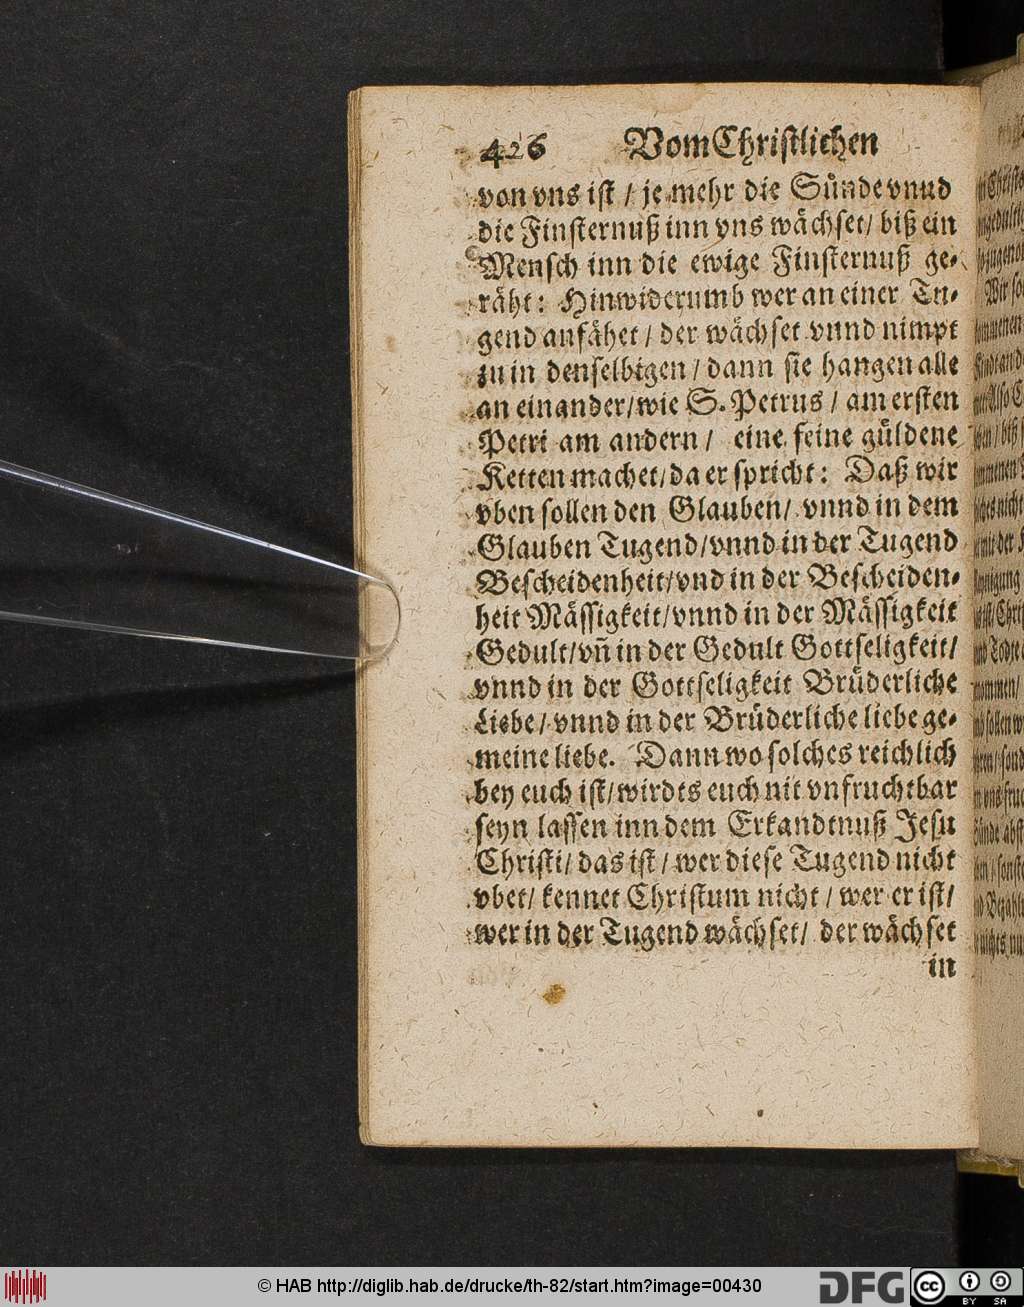 426 Vom Christlichen
von vns ist / je mehr die Sünde vnnd
die Finsternuß inn vns wächset / biß ein
Mensch inn die ewige Finsternuß ge-
räht: Hinwiderumb wer an einer Tu-
gend anfähet / der wächset vnnd nimpt
zu in denselbigen / dann sie hangen alle
an einander / wie S. Petrus / am ersten
Petri am andern / eine feine güldene
Ketten machet / da er spricht: Daß wir
vben sollen den Glauben / vnnd in dem
Glauben Tugend / vnnd in der Tugend
Bescheidenheit / vnd in der Bescheiden-
heit Mässigkeit / vnnd in der Mässigkeit
Gedult / vñ in der Gedult Gottseligkeit /
vnnd in der Gottseligkeit Brüderliche
Liebe / vnnd in der Brüderliche liebe ge-
meine liebe. Dann wo solches reichlich
bey euch ist / wirdts euch nit vnfruchtbar
seyn lassen inn dem Erkandtnuß Jesu
Christi / das ist / wer diese Tugend nicht
vbet / kennet Christum nicht / wer er ist /
wer in der Tugend wächset / der wächset
in
© HAB http://diglib.hab.de/drucke/th-82/start.htm?image=00430
DFG
cc BY SA